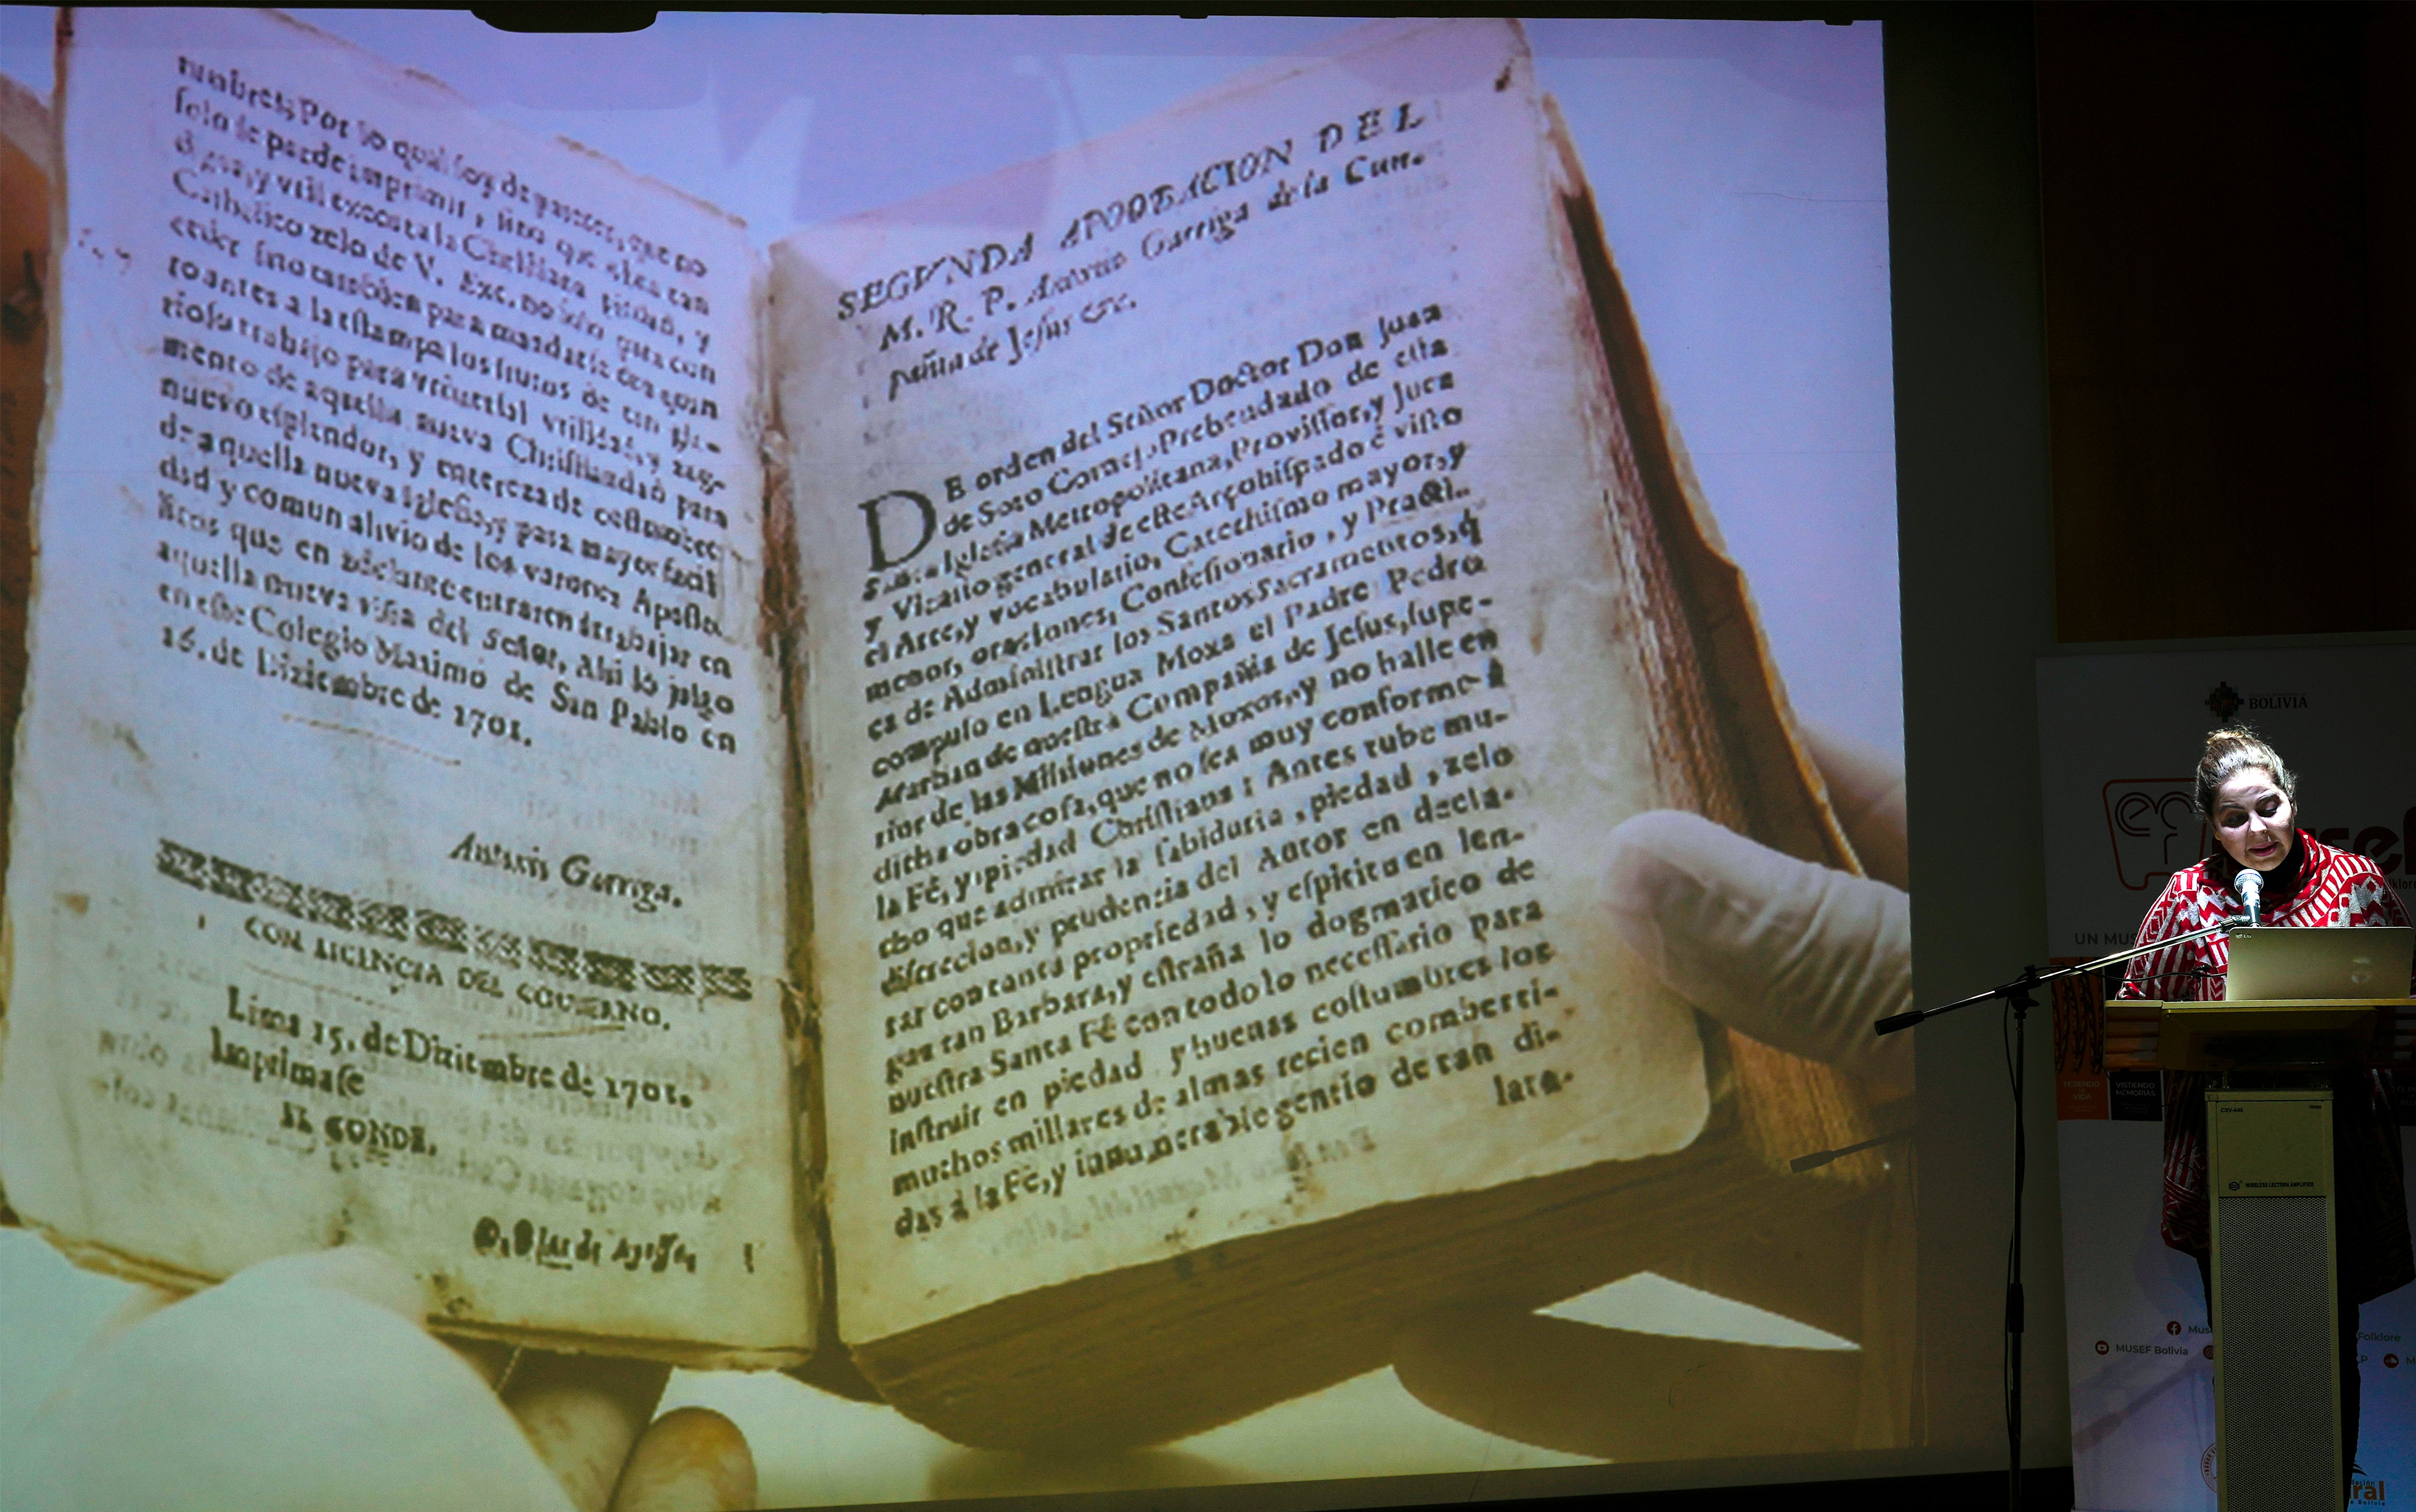 tumbres; Por lo qual soy de parecer, que no
solo se puede imprimir, sino que
Catholico zelo de V. Exc. no solo
ceder sino tambien para mandarle
ro antes a la estampa los frutos de
rioso trabajo para
mento de aquella nueva Christiandad para
nuevo esplendor, y entereza de costumbres
de aquella nueva Iglesia, y para mayor facili
dad y comun alivio de los varones Aposto
licos que en adelante entraren á trabajar en
aquella nueva viña del Señor, Assi lo juzgo
en este Colegio Maximo de San Pablo en
16. de Diziembre de 1701.
Antonio Garriga.
CON LICENCIA DEL GOVIERNO.
Lima 15. de Diziembre de 1701.
Imprimase
EL CONDE.
SEGVNDA APROBACION DEL
M. R. P. Antonio Garriga de la Com-
pañia de Jesus &c.
DE orden del Señor Doctor Don Juan
de Soto Cornejo Prebendado de esta
Santa Iglesia Metropolitana, Provissor, y Juez
y Vicario general de este Arçobispado é visto
el Arte, y vocabulario, Catechismo mayor, y
menor, oraciones, Confessionario, y Practi-
ca de Administrar los Santos Sacramentos, q̃
compuso en Lengua Moxa el Padre Pedro
Marban de nuestra Compañia de Jesus, supe-
rior de las Missiones de Moxos, y no halle en
dicha obra cosa, que no sea muy conforme á
la Fé, y piedad Christiana: Antes tube mu-
cho que admirar la sabiduria, piedad, zelo
discrecion, y prudencia del Autor en decla-
rar con tanta propriedad, y espiritu en len-
gua tan Barbara, y estraña lo dogmatico de
nuestra Santa Fé con todo lo necessario para
instruir en piedad, y buenas costumbres los
muchos millares de almas recien comberti-
das á la Fé, y innumerable gentio de tan di-
lata-
BOLIVIA
UN MUS
TEJIENDO
VIDA
VISTIENDO
MEMORIAS
WIRELESS LECTERN AMPLIFIER
MUSEF Bolivia
Folklore